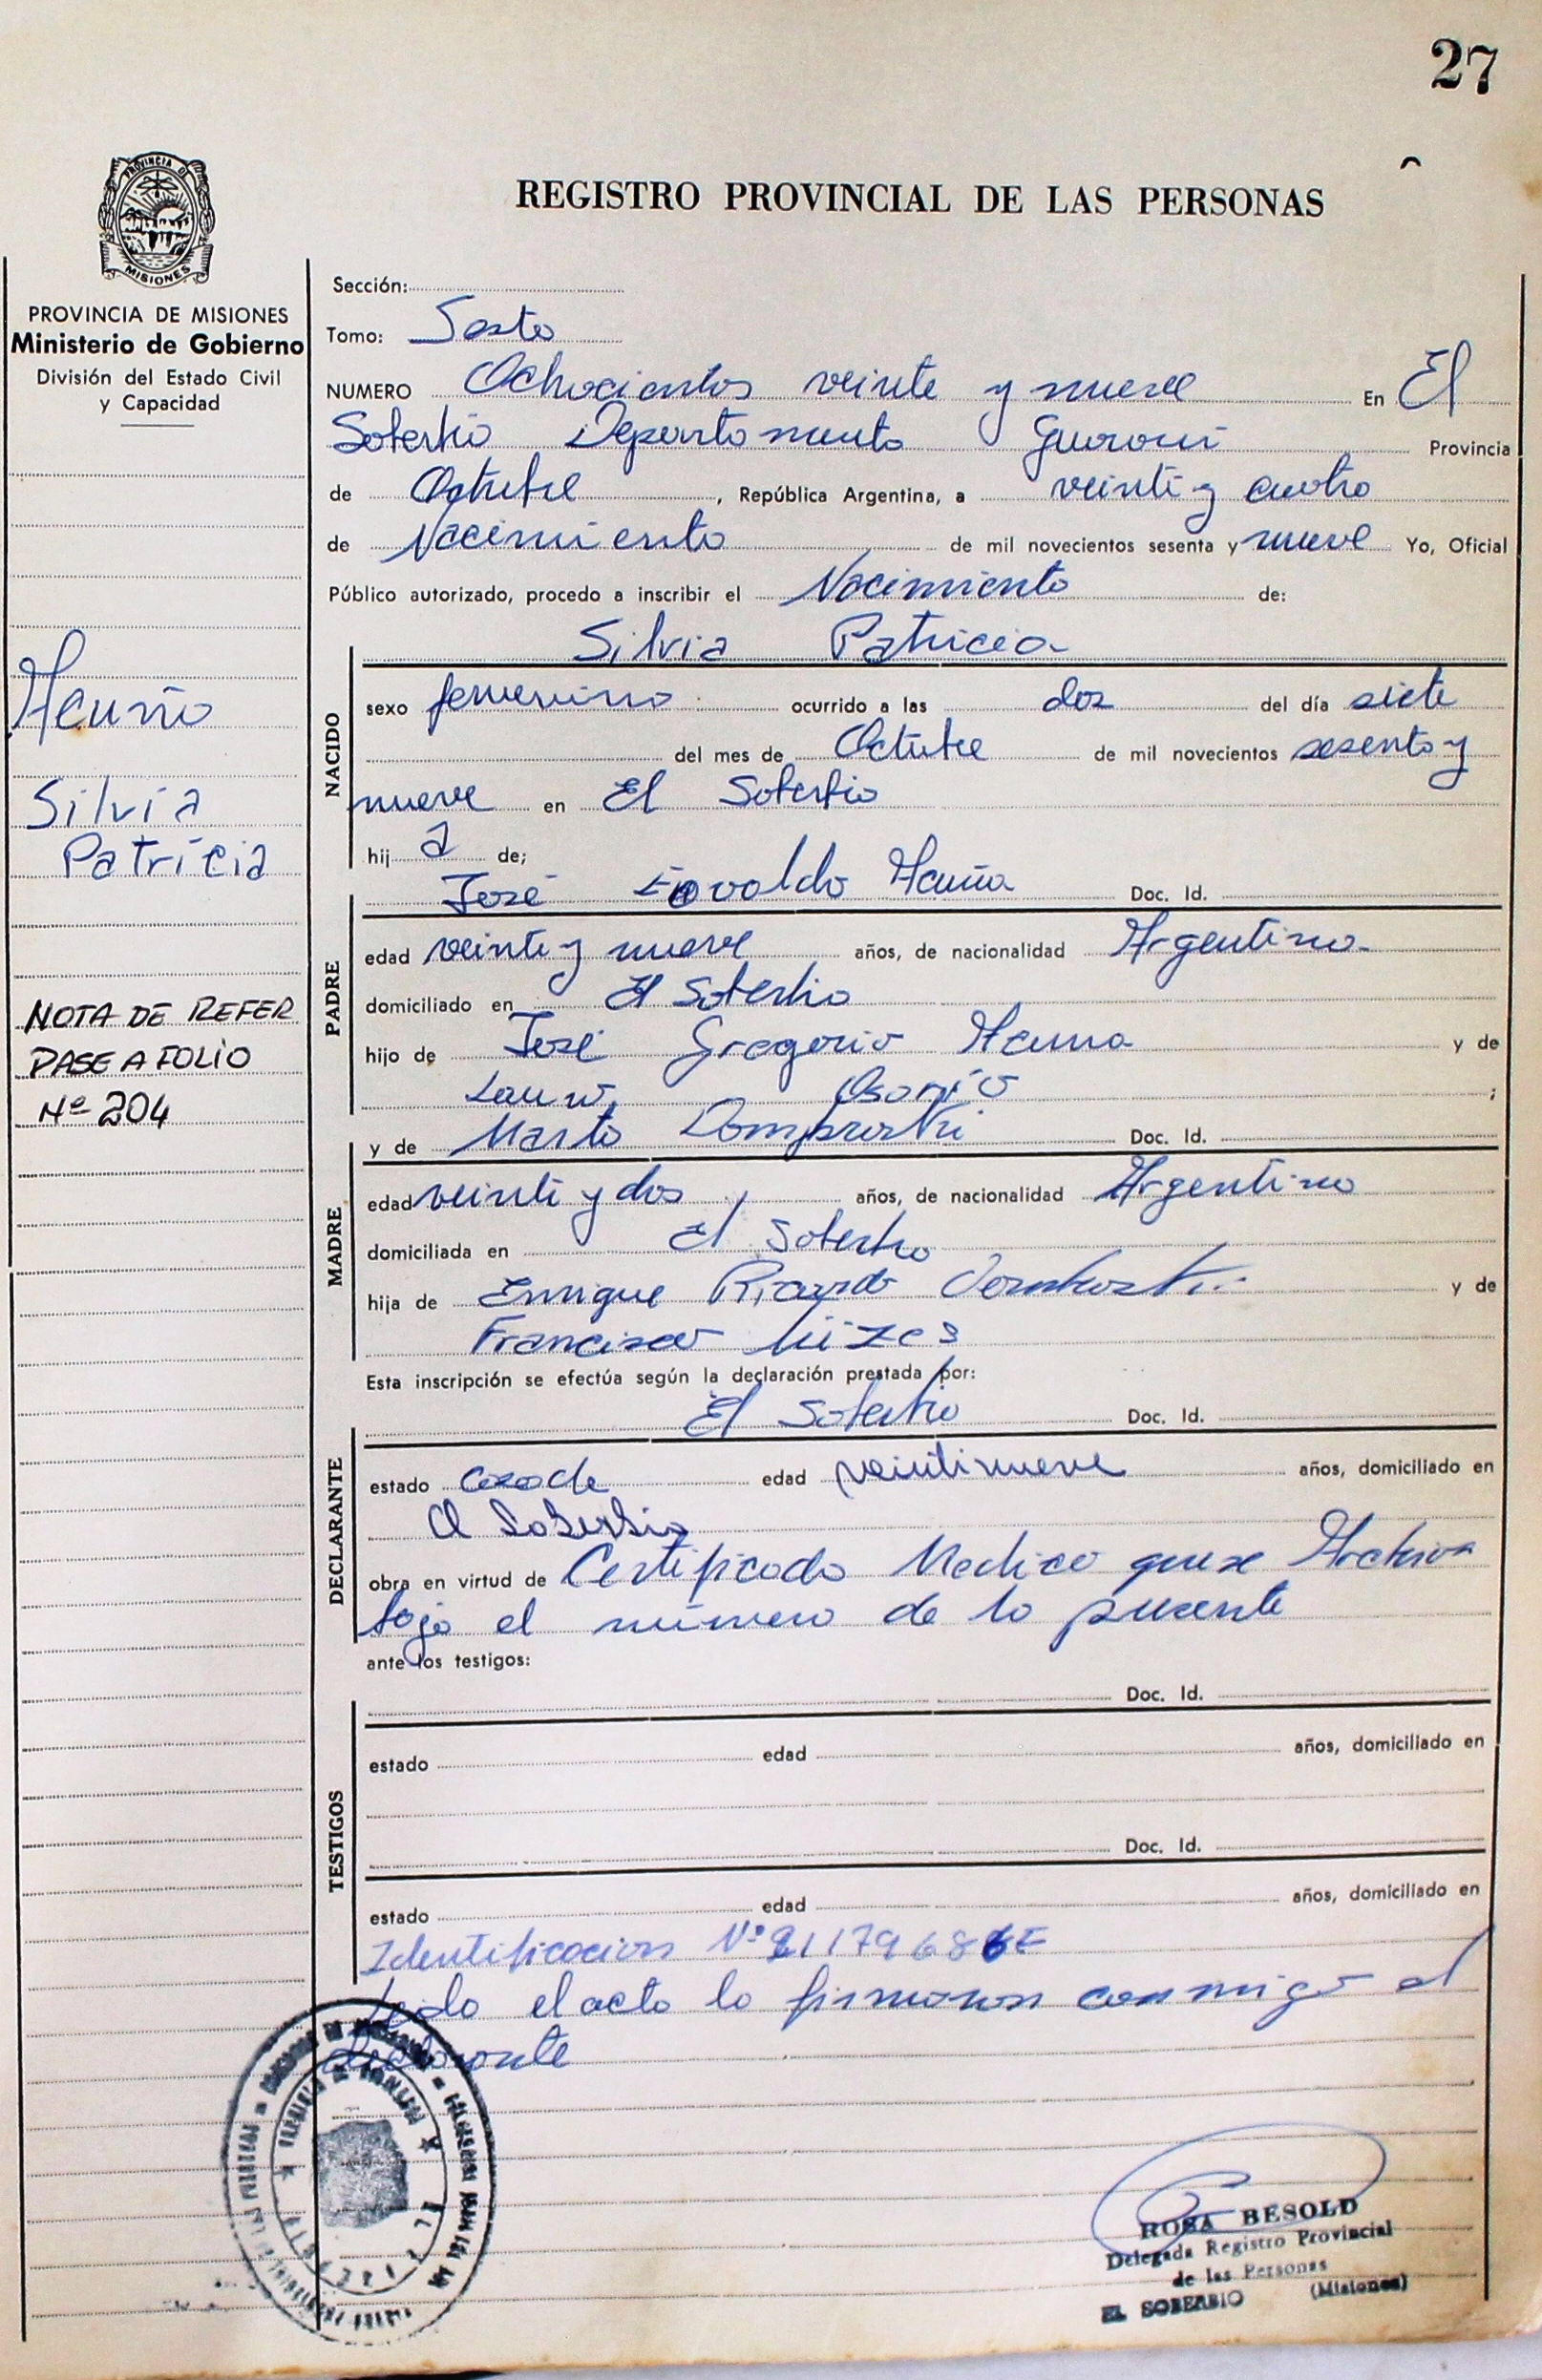 27
REGISTRO PROVINCIAL DE LAS PERSONAS
PROVINCIA DE MISIONES
PROVINCIA DE MISIONES
Ministerio de Gobierno
División del Estado Civil
y Capacidad
Acuña
Silvia
Patricia
NOTA DE REFER
PASE A FOLIO
Nº 204
Sección:
Tomo: Sexto
NUMERO Ochocientos veinte y nueve En El
Soberbio Departamento Guaraní Provincia
de Octubre, República Argentina, a veinti y cuatro
de Nacimiento de mil novecientos sesenta y nueve Yo, Oficial
Público autorizado, procedo a inscribir el Nacimiento de:
Silvia Patricia
NACIDO
sexo femenino ocurrido a las dos del día siete
del mes de Octubre de mil novecientos sesenta y
nueve en El Soberbio
hij a de;
José Acuña Doc. Id.
PADRE
edad veinte y nueve años, de nacionalidad Argentina
domiciliado en El Soberbio
hijo de José Gregorio Acuna y de
Osorio ;
y de Marta Doc. Id.
MADRE
edad veinti y dos años, de nacionalidad Argentina
domiciliada en El Soberbio
hija de Enrique Ricardo y de
Esta inscripción se efectúa según la declaración prestada por:
El Soberbio Doc. Id.
DECLARANTE
estado edad veintinueve años, domiciliado en
El Soberbio
obra en virtud de Certificado Medico que se Archiva
bajo el número de la presente
ante los testigos:
Doc. Id.
TESTIGOS
estado edad años, domiciliado en
Doc. Id.
estado edad años, domiciliado en
Identificacion Nº
Leido el acta lo firmaron conmigo el
declarante
ROSA BESOLD
Delegada Registro Provincial
de las Personas
EL SOBERBIO (Misiones)